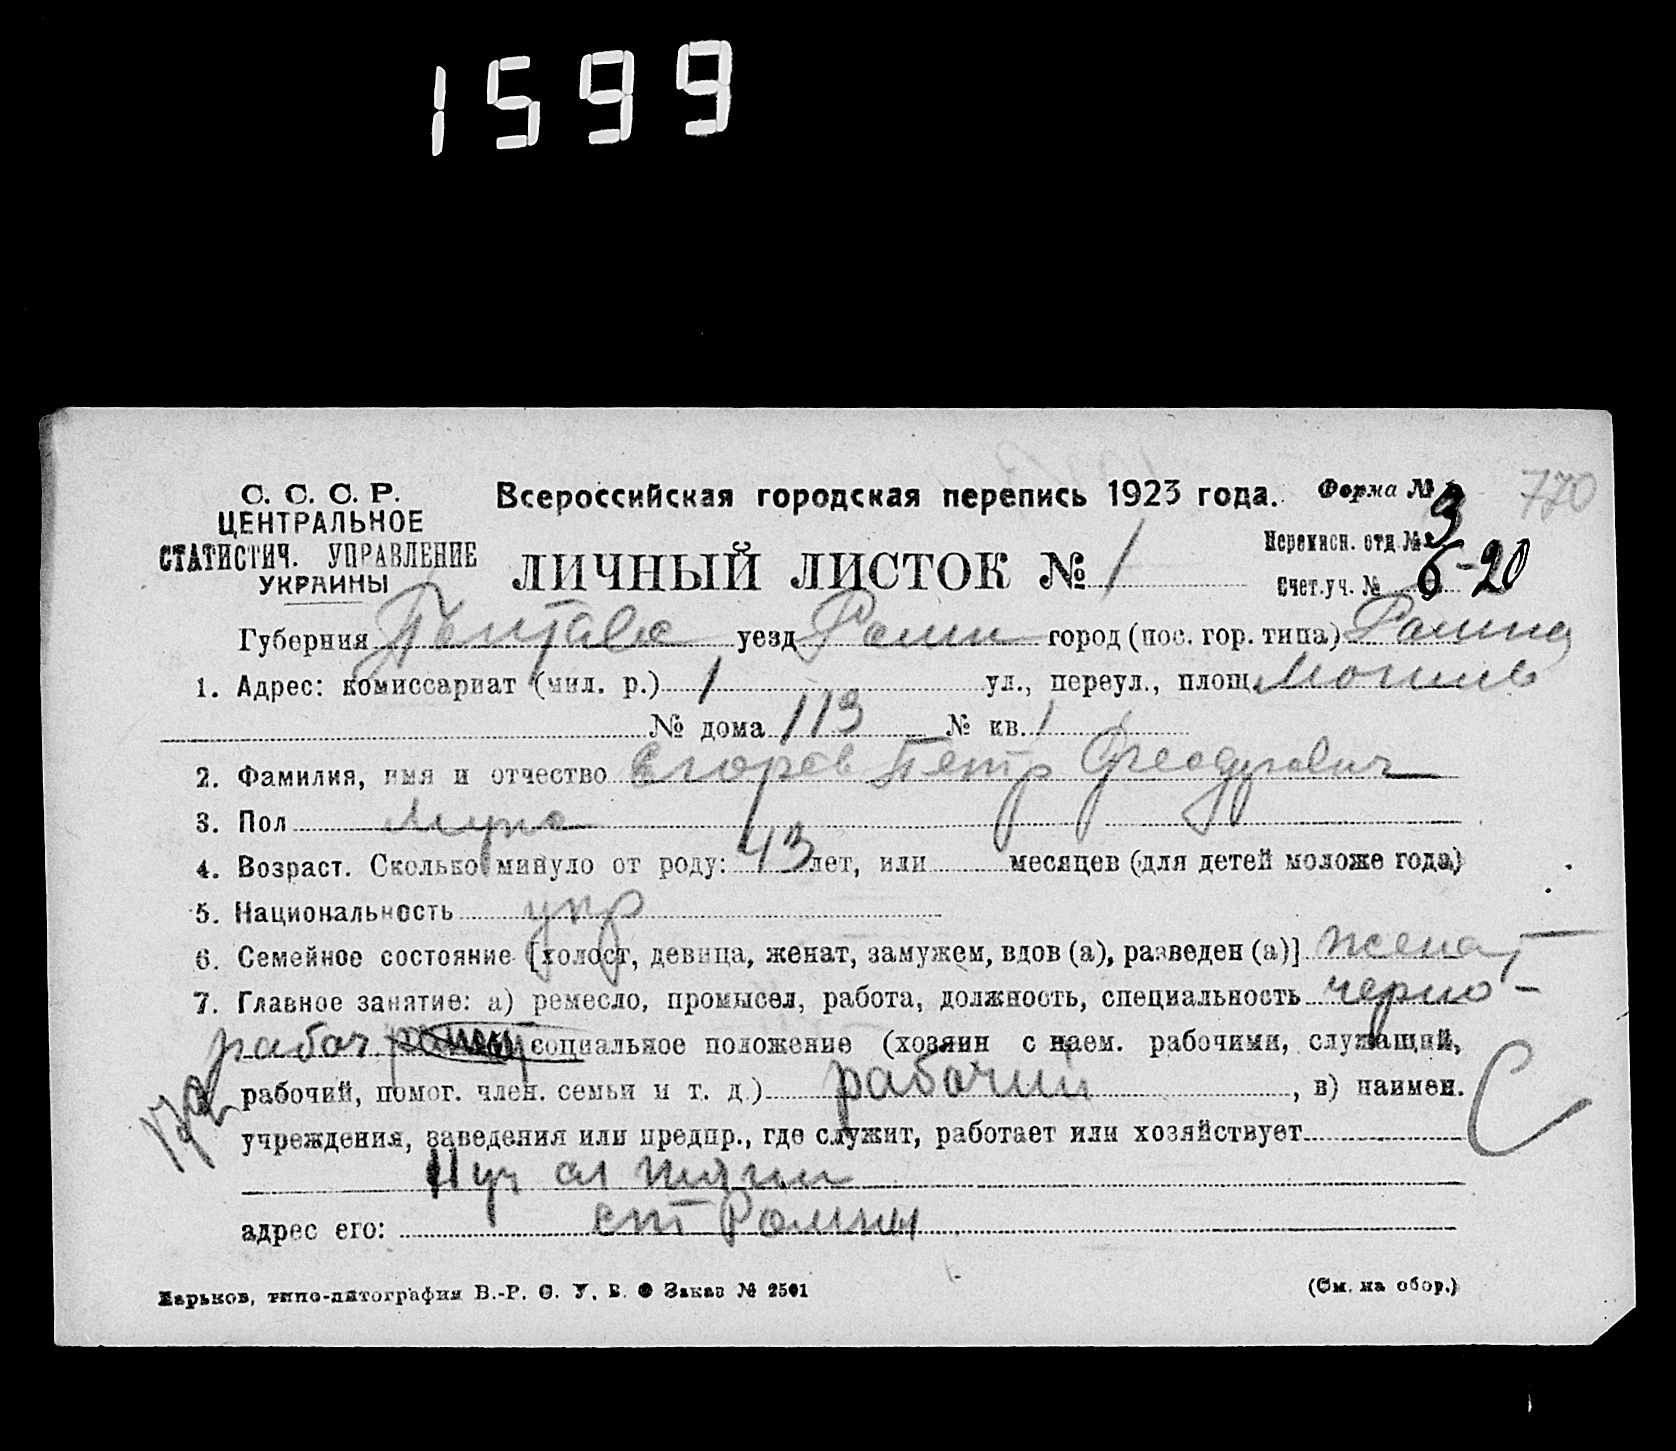 1599
С. С. С. Р.
ЦЕНТРАЛЬНОЕ
СТАТИСТИЧ. УПРАВЛЕНИЕ
УКРАИНЫ
Всероссийская городская перепись 1923 года.
Форма №
770
ЛИЧНЫЙ ЛИСТОК № 1
Переписн. отд. № 3
Счет. уч. № 6-20
Губерния Полтава уезд Ромны город (пос. гор. типа) Ромны
1. Адрес: комиссариат (мил. р.) 1 ул., переул., площ.
№ дома 113 № кв. 1
2. Фамилия, имя и отчество Егорев Петр Феодорович
3. Пол муж
4. Возраст. Сколько минуло от роду: 43 лет, или месяцев (для детей моложе года)
5. Национальность укр
6. Семейное состояние [холост, девица, женат, замужем, вдов (а), разведен (а)] женат
7. Главное занятие: а) ремесло, промысел, работа, должность, специальность черно-
рабоч социальное положение (хозяин с наем. рабочими, служащий,
рабочий, помог. член. семьи и т. д.) рабочий, в) наимен.
учреждения, заведения или предпр., где служит, работает или хозяйствует
11 уч сл тяги
адрес его: ст Ромны
С
Харьков, типо-литография В.-Р. С. У. В. О Заказ № 2501
(См. на обор.)